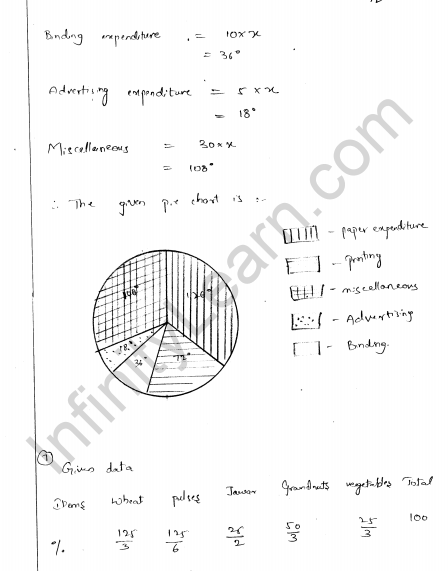 Binding expenditure . = 10 × x
= 36°
Advertising expenditure = 5 × x
= 18°
Miscellaneous = 30 × x
= 108°
∴ The given pie chart is :-
- paper expenditure
- printing
- miscellaneous
- Advertising
- Binding.
108°
126°
18°
36°
72°
InfinityLearn.com
7
Given data
Items wheat pulses Jawar Grandnuts vegetables Total
% 125/3 125/6 25/2 50/3 25/3 100